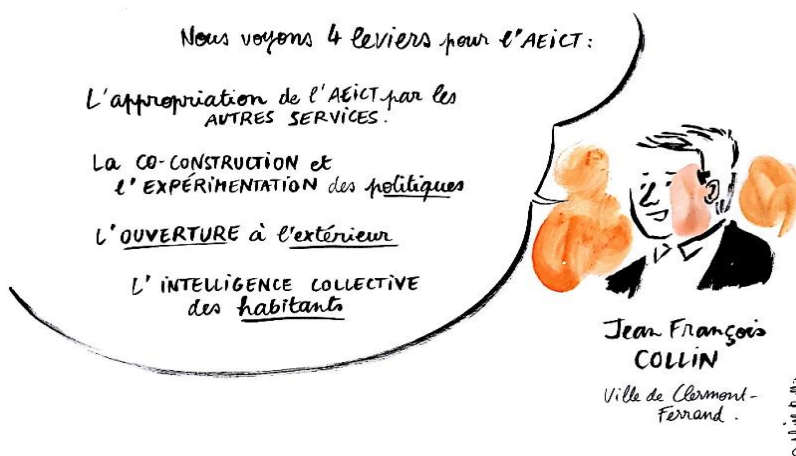 Nous voyons 4 leviers pour l'AEiCT :
L'appropriation de l'AEiCT par les
AUTRES SERVICES.
La CO-CONSTRUCTION et
l'EXPÉRIMENTATION des politiques
L'OUVERTURE à l'extérieur
L'INTELLIGENCE COLLECTIVE
des habitants
Jean François
COLLIN
Ville de Clermont-
Ferrand.